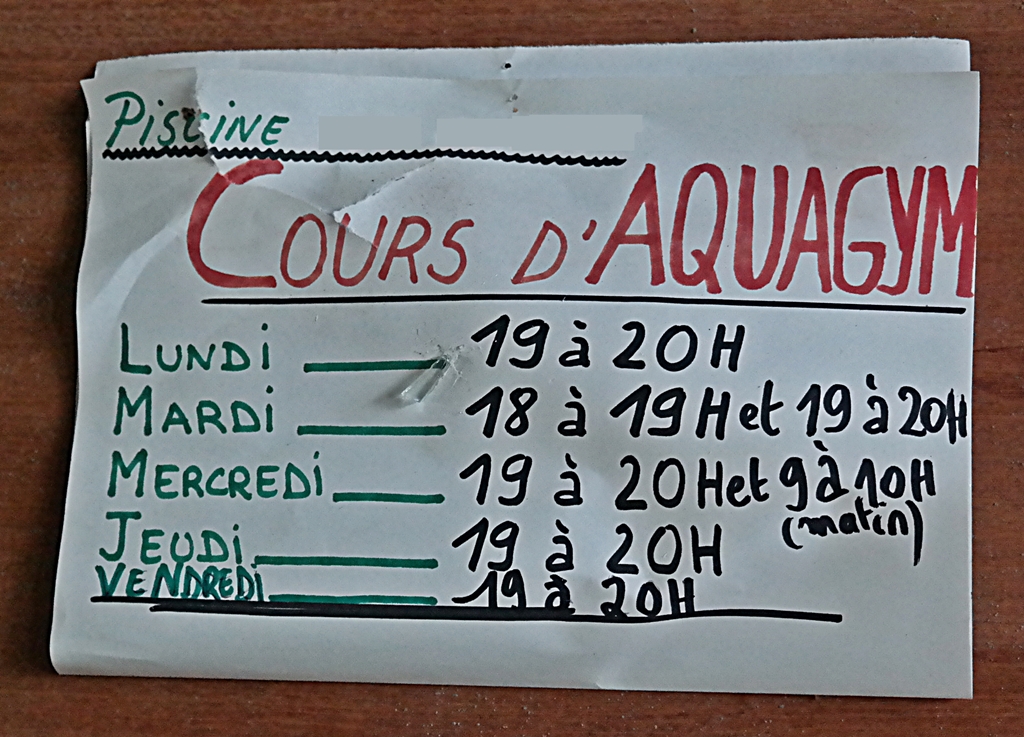 PISCINE
COURS D'AQUAGYM
LUNDI 19 à 20H
MARDI 18 à 19H et 19 à 20H
MERCREDI 19 à 20H et 9 à 10H
(matin)
JEUDI 19 à 20H
VENDREDI 19 à 20H